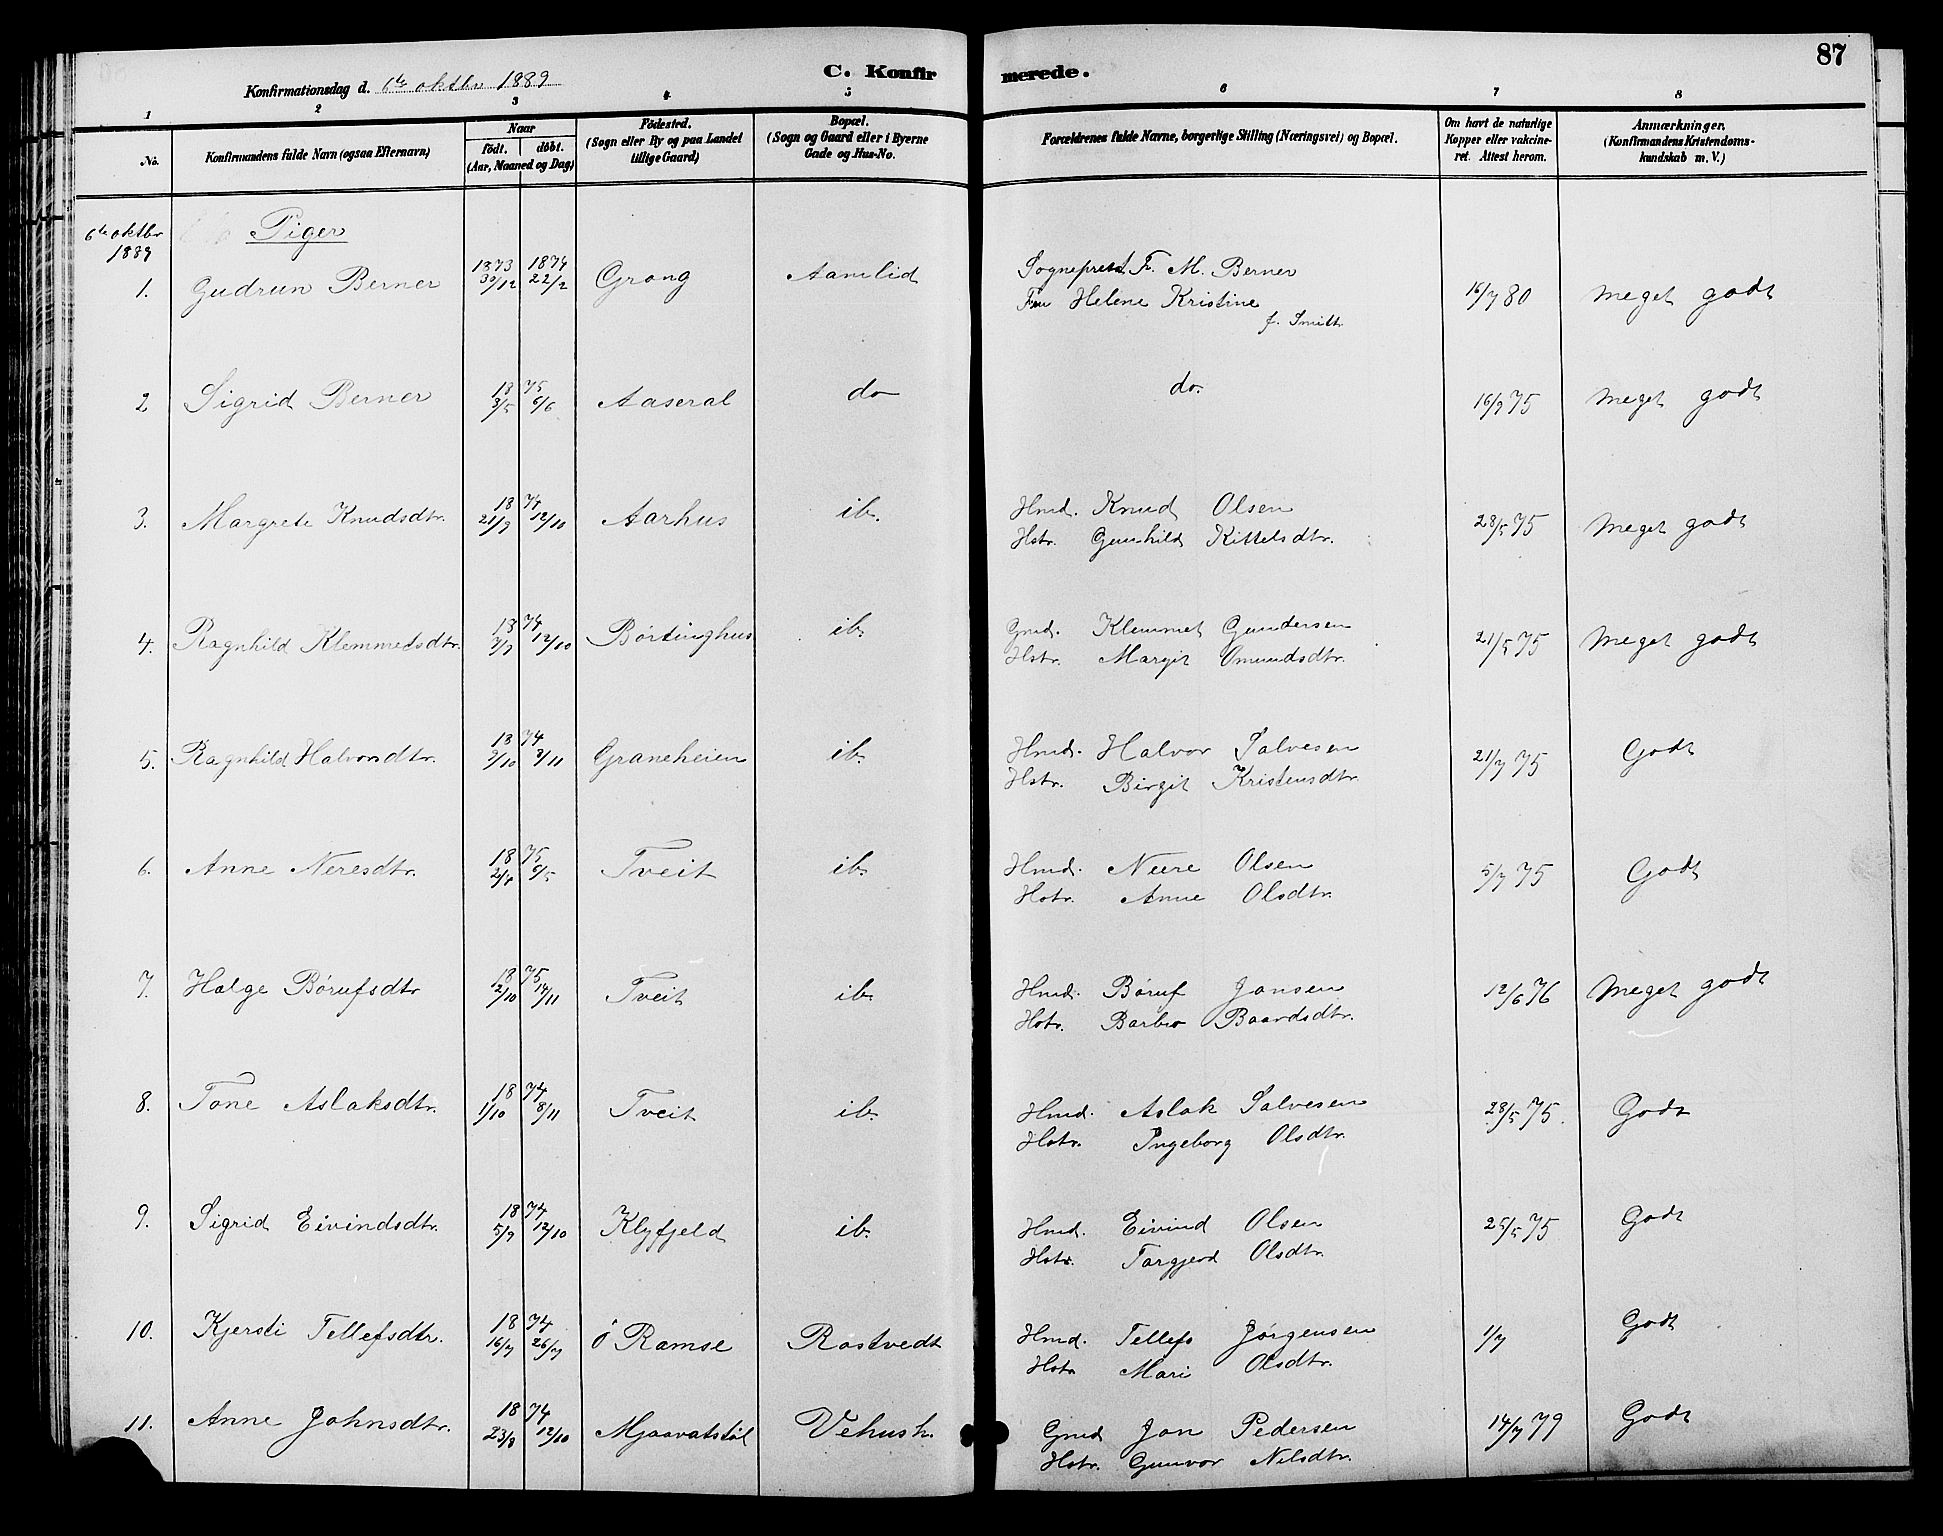 87
C. Konfirmerede.
Konfirmationsdag d. 6te oktbr 1889
1 2 3 4 5 6 7 8
No.
Konfirmandens fulde Navn (ogsaa Efternavn)
Naar
født. døbt.
(Aar, Maaned og Dag)
Fødested.
(Sogn eller By og paa Landet
tillige Gaard)
Bopæl.
(Sogn og Gaard eller i Byerne
Gade og Hus-No.
Forældrenes fulde Navne, borgerlige Stilling (Næringsvei) og Bopæl.
Om havt de naturlige
Kopper eller vakcine-
ret. Attest herom.
Anmærkninger.
(Konfirmandens Kristendoms-
kundskab m. V.)
6te oktbr
1889
Piger
1. Gudrun Berner 1873 30/12 1874 22/2 Grong Aamlid Sogneprest F. M. Berner 16/7 80 Meget godt
Fru Helene Kristine
f. Smitt
2 Sigrid Berner 1875 3/5 6/6 Aaseral do do. 16/9 75 Meget godt
3. Margrete Knudsdtr. 1874 21/9 12/10 Aarhus ib. Hmd. Knud Olsen 28/5 75 Meget godt
Hstr. Gunhild Kittelsdtr.
4. Ragnhild Klemmedsdtr. 1874 7/9 12/10 Børtinghus ib. Gmd. Klemmet Gundersen 21/5 75 Meget godt
Hstr. Margit Omundsdtr.
5. Ragnhild Halvorsdtr. 1874 2/10 8/11 Graneheien ib. Hmd. Halvor Salvesen 21/7 75 Godt
Hstr. Birgit Kristensdtr
6. Anne Neresdtr. 1875 2/4 6/5 Tveit ib. Hmd. Neere Olsen 5/7 75 Godt
Hstr. Anne Olsdtr.
7. Helge Børufsdtr 1875 2/10 14/11 Tveit ib. Hmd. Børuf Jansen 12/6 76 Meget godt
Hstr. Barbro Baardsdtr.
8. Tone Aslaksdtr. 1874 1/10 8/11 Tveit ib. Hmd. Aslak Salvesen 28/5 75. Godt
Hstr. Ingeborg Olsdtr.
9. Sigrid Eivindsdtr. 1874 5/9 12/10 Klyfjeld ib. Hmd. Eivind Olsen 25/5 75 Godt
Hstr. Targjerd Olsdtr.
10. Kjersti Tellefsdtr. 1874 16/7 26/7 Ö Ramse Rostvedt Hmd. Tellefs Jørgensen 1/7 Godt
Hstr Mari Olsdtr.
11. Anne Johnsdtr. 1874 23/8 12/10 Mjaavatstøl Vehush. Gmd Jon Pedersen 14/7 79 Godt
Hstr. Gunvor Nilsdtr.